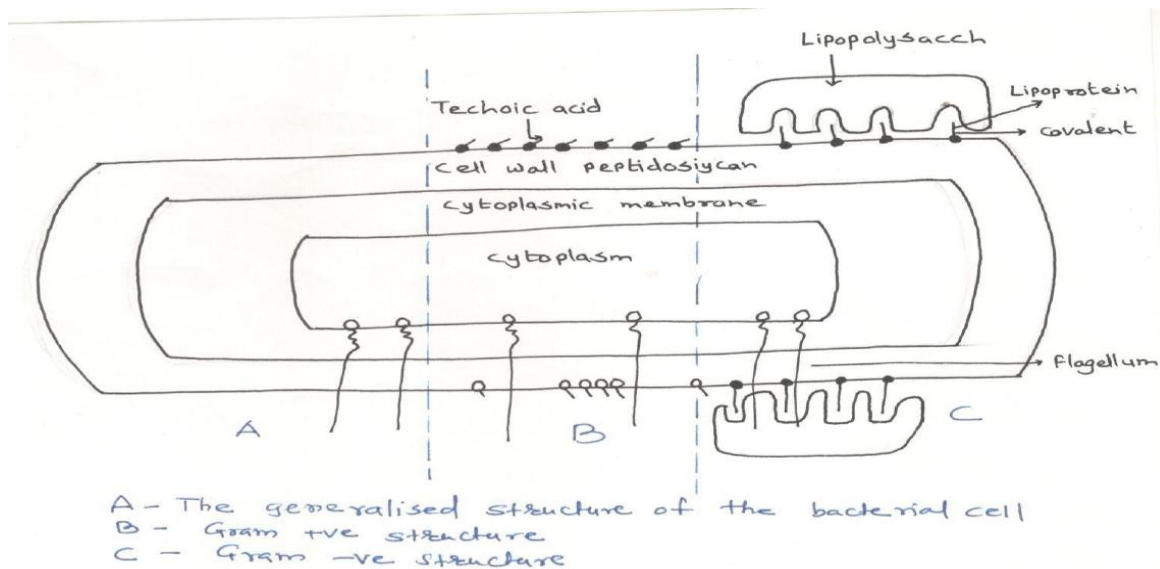 Lipopolysacch
Lipoprotein
Techoic acid
covalent
cell wall peptidosiycan
cytoplasmic membrane
cytoplasm
flagellum
A
B
C
A - The generalised structure of the bacterial cell
B - Gram +ve structure
C - Gram -ve structure